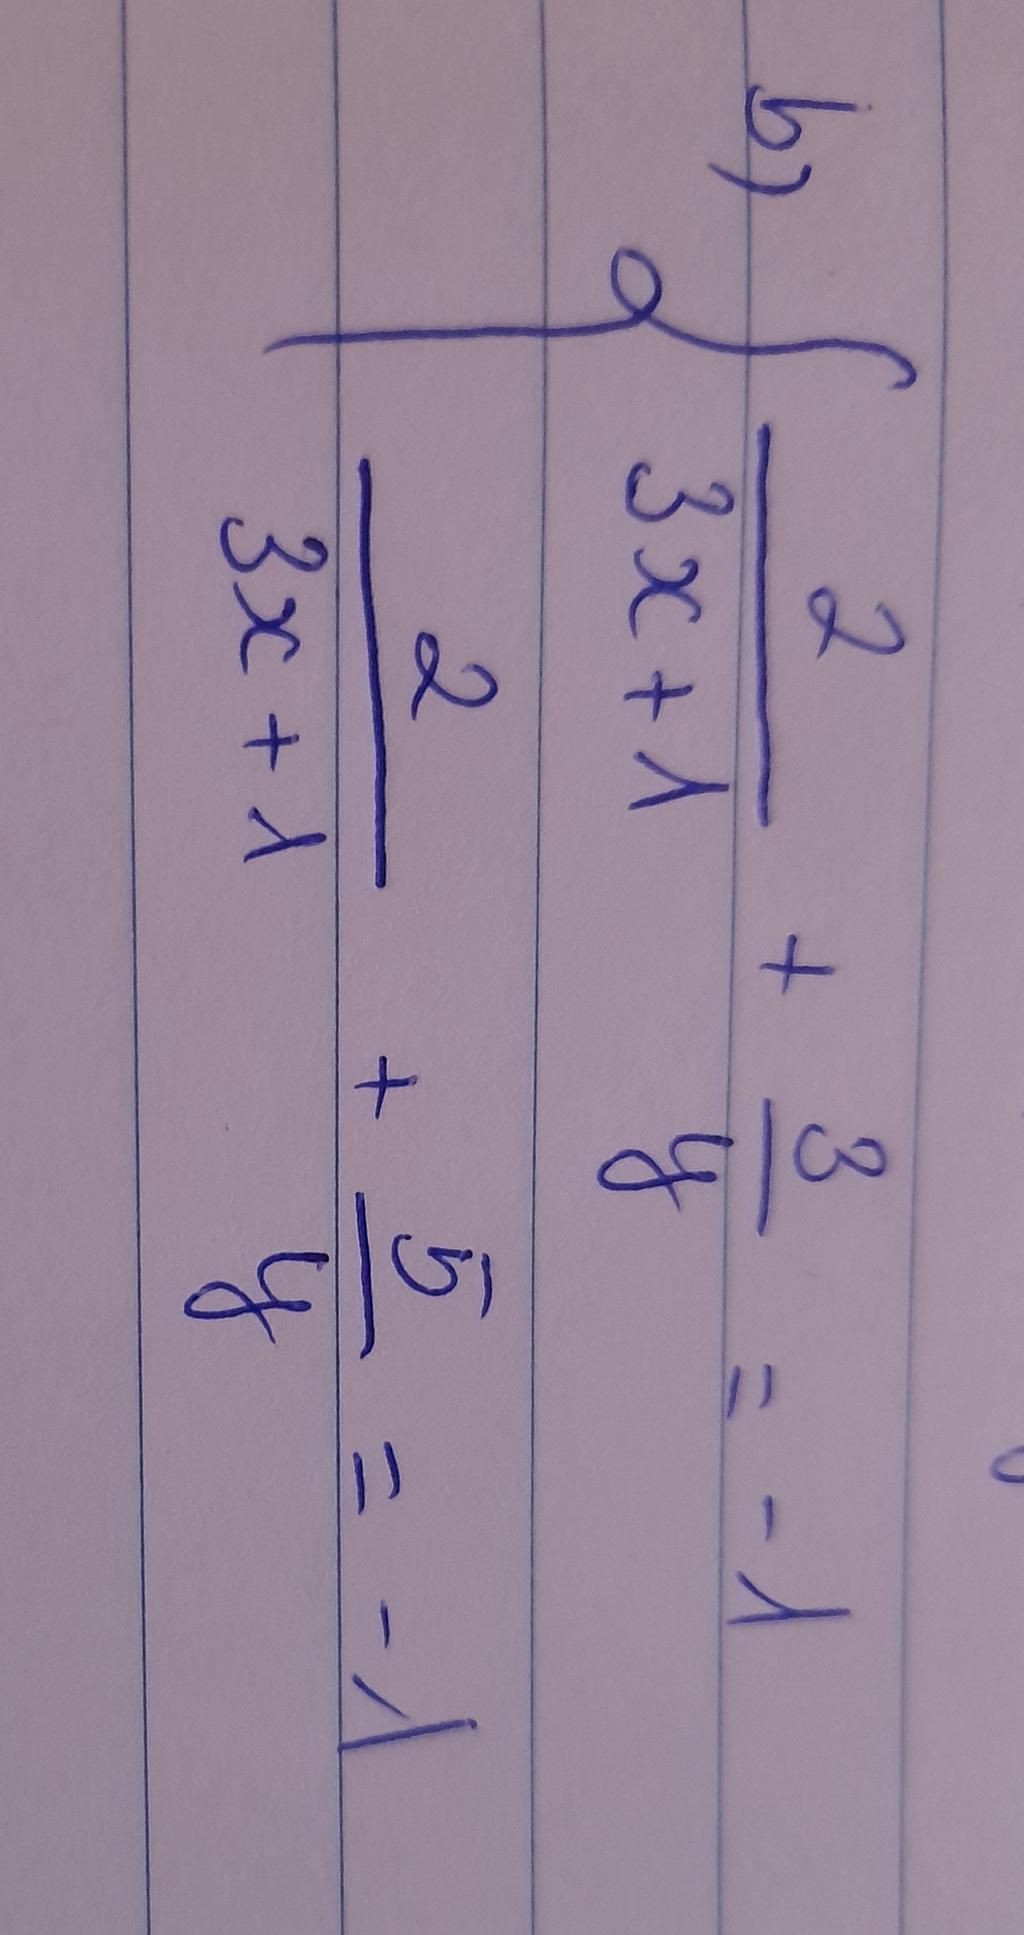 b) { 2/(3x + 1) + 3/y = -1
2/(3x + 1) + 5/y = -1